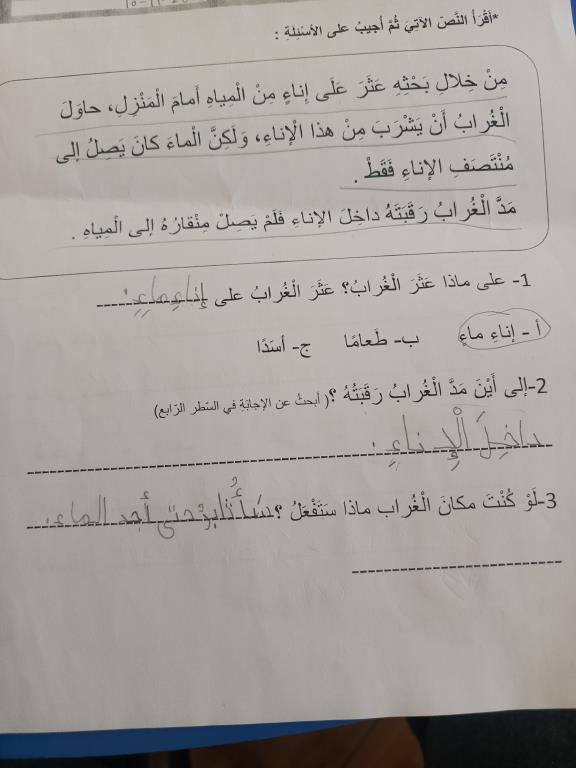 *أَقْرَأُ النَّصَ الآتِيَ ثُمَّ أُجيبُ على الأَسْئِلَةِ :
مِنْ خِلالِ بَحْثِهِ عَثَرَ عَلَى إناءٍ مِنْ الْمِياهِ أمامَ الْمَنْزِلِ، حاوَلَ
الْغُرابُ أَنْ يَشْرَبَ مِنْ هذا الْإناءِ، وَلَكِنَّ الْماءَ كانَ يَصِلُ إلى
مُنْتَصَفِ الإناءِ فَقَطْ .
مَدَّ الْغُرابُ رَقَبَتَهُ داخِلَ الإناءِ فَلَمْ يَصِلْ مِنْقارُهُ إلى الْمِياهِ .
1- على ماذا عَثَرَ الْغُرابُ؟ عَثَرَ الْغُرابُ على إِناءِ ماءٍ.
أ - إناءِ ماءٍ ب- طَعامًا ج- أسَدًا
2-إلى أَيْنَ مَدَّ الْغُرابُ رَقَبَتُهُ ؟( أبحثُ عن الإجابَةِ في السّطر الرّابع)
داخِلَ الْإِناءِ.
3-لَوْ كُنْتَ مكانَ الْغُراب ماذا سَتَفْعَلُ ؟ حتى أَجد الماء.